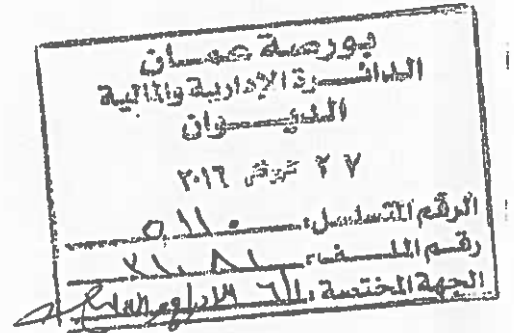 بورصة عمان
الدائرة الإدارية والمالية
الديوان
٢٧ تموز ٢٠١٦
الرقم المتسلسل: ٥١١٠
رقم الملف:
الجهة المختصة: